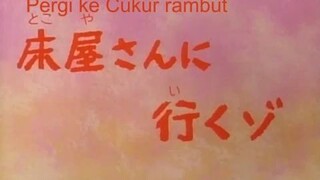 Pergi ke Cukur rambut
とこや
床屋さんに
い
行くゾ